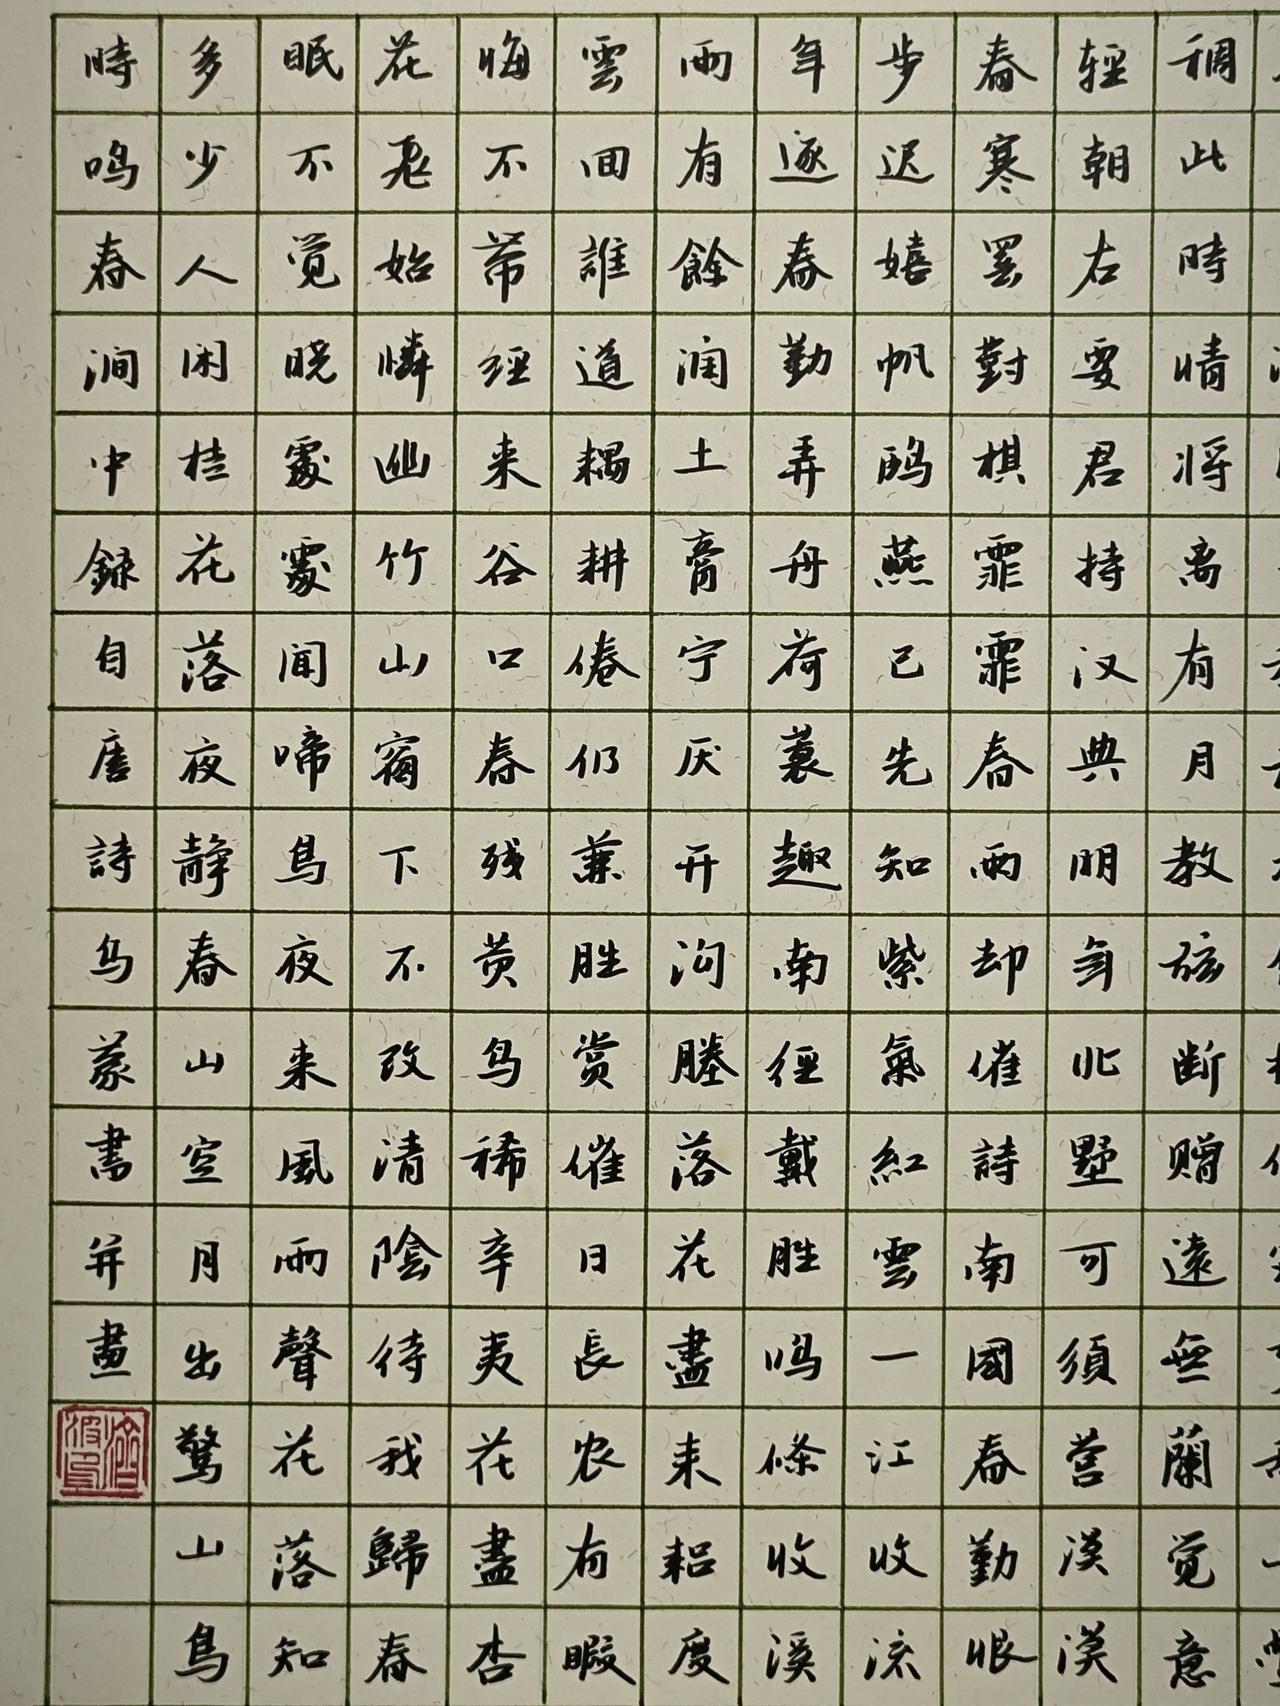 稠此時情将离有月教弦断赠遠無蘭觉意
輕朝右要君持汉典明年北墅可須营漠漠
春寒罢對棋霏霏春雨却催詩南國春勤恨
步迟嬉帆鸥燕已先知紫氣紅雲一江收流
年逐春勤弄舟荷蓑趣南徑戴胜鸣條收溪
雨有餘润土膏宁厌开沟塍落花盡耒耜度
雲回誰道耦耕倦仍兼胜赏催日長农有暇
悔不带經来谷口春残黄鸟稀辛夷花盡杏
花飛始憐幽竹山窗下不改清陰待我歸春
眠不觉晓處處闻啼鸟夜来風雨聲花落知
多少人闲桂花落夜静春山空月出驚山鸟
時鸣春涧中錄自唐詩乌蒙書并畫